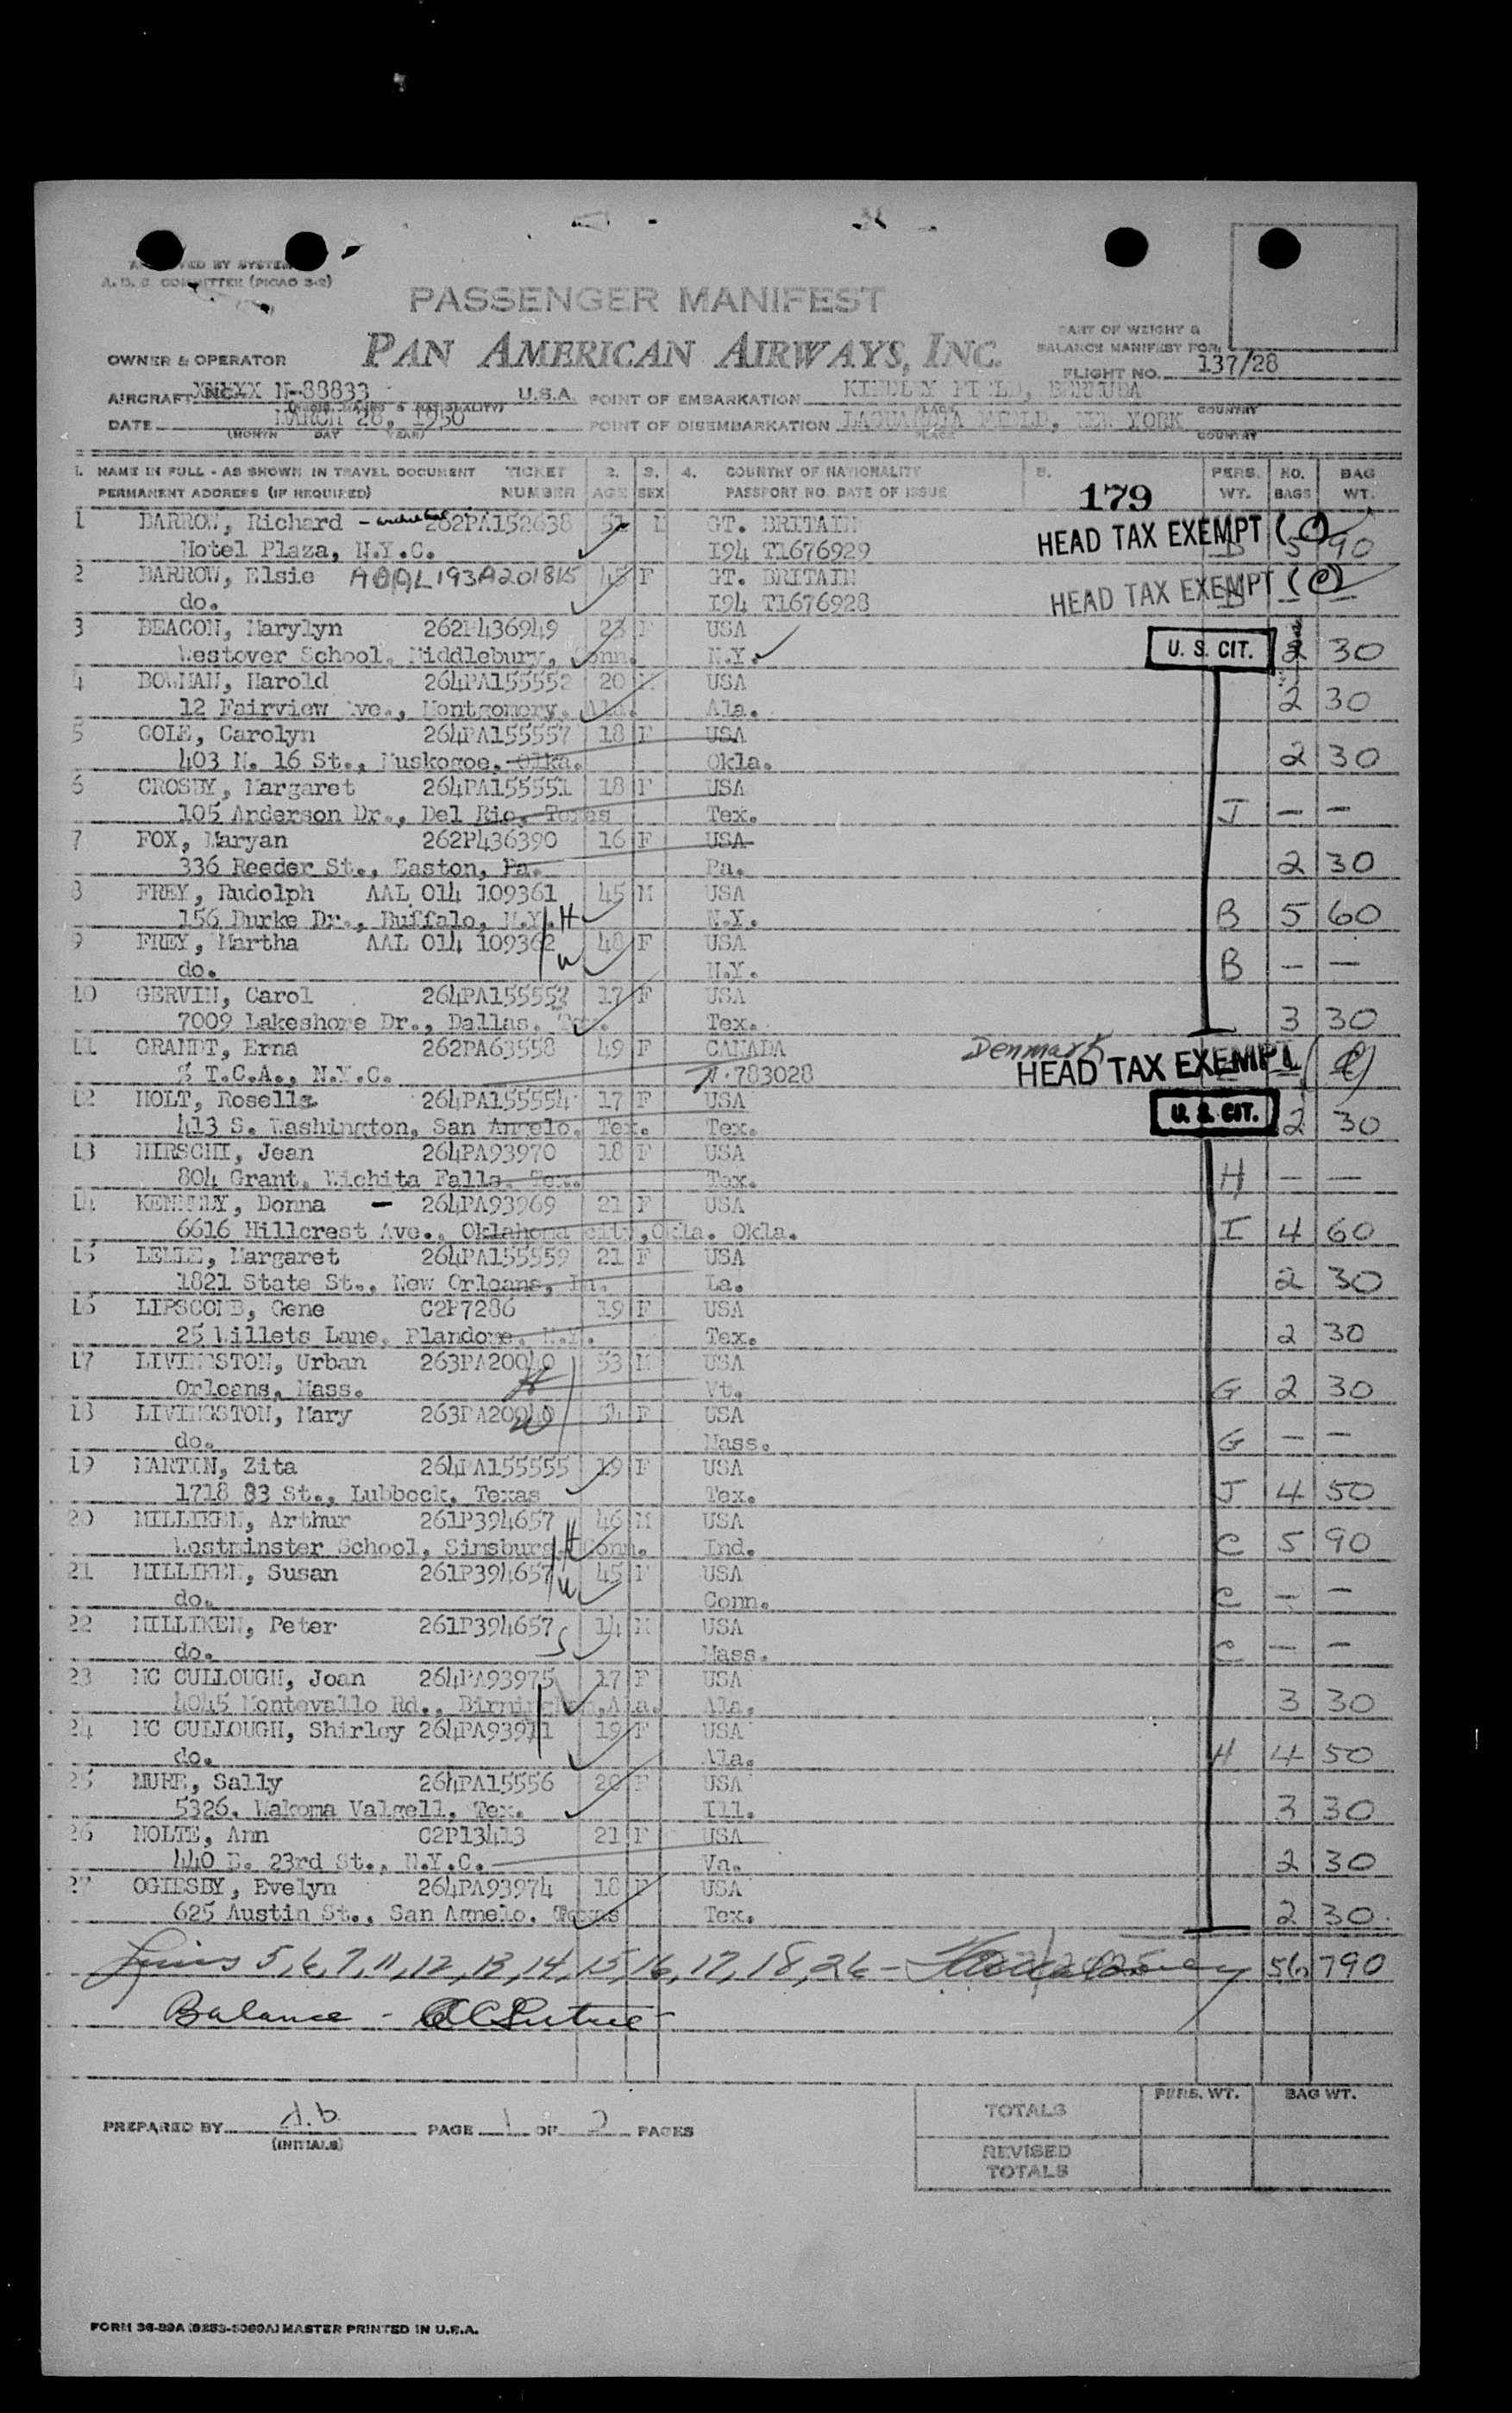 PASSENGER MANIFEST
A. D. C. COMMITTEE (PICAO 3-2)
PAN AMERICAN AIRWAYS, INC.
PART OF WEIGHT &
BALANCE MANIFEST FOR
OWNER & OPERATOR
FLIGHT NO. 137/28
AIRCRAFT N-88833 U.S.A. POINT OF EMBARKATION KINDLEY FIELD, BERMUDA
DATE MARCH 28, 1950 POINT OF DISEMBARKATION LAGUARDIA FIELD, NEW YORK
(MONTH DAY YEAR) PLACE COUNTRY
1. NAME IN FULL - AS SHOWN IN TRAVEL DOCUMENT TICKET 2. 3. 4. COUNTRY OF NATIONALITY 5. PERS. NO. BAG
PERMANENT ADDRESS (IF REQUIRED) NUMBER AGE SEX PASSPORT NO. DATE OF ISSUE 179 WT. BAGS WT.
1 BARROW, Richard 262PA152638 51 M GT. BRITAIN HEAD TAX EXEMPT
Hotel Plaza, N.Y.C. I94 T1676929 B 5 90
2 BARROW, Elsie AOAL193A201815 45 F GT. BRITAIN HEAD TAX EXEMPT
do. I94 T1676928 B — —
3 BEACON, Marylyn 262P436949 23 F USA
Westover School, Middlebury, Conn. N.Y. U. S. CIT. 2 30
4 BOWMAN, Harold 264PA155552 20 M USA
12 Fairview Ave., Montgomery, Ala. Ala. 2 30
5 COLE, Carolyn 264PA155557 18 F USA
403 N. 16 St., Muskogee, Olka. Okla. 2 30
6 CROSBY, Margaret 264PA155551 18 F USA
105 Anderson Dr., Del Rio, Texas Tex. J — —
7 FOX, Maryan 262P436390 16 F USA
336 Reeder St., Easton, Pa. Pa. 2 30
8 FREY, Rudolph AAL 014 109361 45 M USA
156 Burke Dr., Buffalo, N.Y. H N.Y. B 5 60
9 FREY, Martha AAL 014 109362 48 F USA
do. W N.Y. B — —
10 GERVIN, Carol 264PA155558 17 F USA
7009 Lakeshore Dr., Dallas, Tex. Tex. 3 30
11 GRANDT, Erna 262PA63558 49 F CANADA Denmark
% T.C.A., N.Y.C. V-783028 HEAD TAX EXEMPT
12 HOLT, Rosella 264PA155554 17 F USA U. S. CIT.
413 S. Washington, San Angelo, Tex. Tex. 2 30
13 HIRSCHI, Jean 264PA93970 18 F USA
804 Grant, Wichita Falls, Tex. Tex. H — —
14 KENNELY, Donna - 264PA93969 21 F USA
6616 Hillcrest Ave., Oklahoma city, Okla. Okla. I 4 60
15 LELLE, Margaret 264PA155559 21 F USA
1821 State St., New Orleans, La. La. 2 30
16 LIPSCOMB, Gene C2P7286 19 F USA
25 Willets Lane, Plandome, N.Y. Tex. 2 30
17 LIVINGSTON, Urban 263PA20040 53 M USA
Orleans, Mass. H Vt. G 2 30
18 LIVINGSTON, Mary 263PA20040 54 F USA
do. W Mass. G — —
19 MARTIN, Zita 264PA155555 19 F USA
1718 83 St., Lubbock, Texas Tex. J 4 50
20 MILLIKEN, Arthur 261P394657 46 M USA
Westminster School, Simsburg, Conn. H Ind. C 5 90
21 MILLIKEN, Susan 261P394657 45 F USA
do. W Conn. C — —
22 MILLIKEN, Peter 261P394657 14 M USA
do. S Mass. C — —
23 MC CULLOUGH, Joan 264PA93975 17 F USA
4045 Montevallo Rd., Birmingham, Ala. Ala. 3 30
24 MC CULLOUGH, Shirley 264PA93971 19 F USA
do. Ala. H 4 50
25 MURE, Sally 264PA15556 20 F USA
5326, Wakoma Valgell, Tex. Ill. 3 30
26 NOLTE, Ann C2P13413 21 F USA
440 E. 23rd St., N.Y.C. Va. 2 30
27 OGLESBY, Evelyn 264PA93974 18 F USA
625 Austin St., San Agnelo, Texas Tex. 2 30
Lines 5, 6, 7, 11, 12, 13, 14, 15, 16, 17, 18, 26 - 56 790
Balance -
PERS. WT. BAG WT.
TOTALS
PREPARED BY A.b. PAGE 1 OF 2 PAGES
(INITIALS)
REVISED
TOTALS
FORM 36-29A (9253-5060A) MASTER PRINTED IN U.S.A.